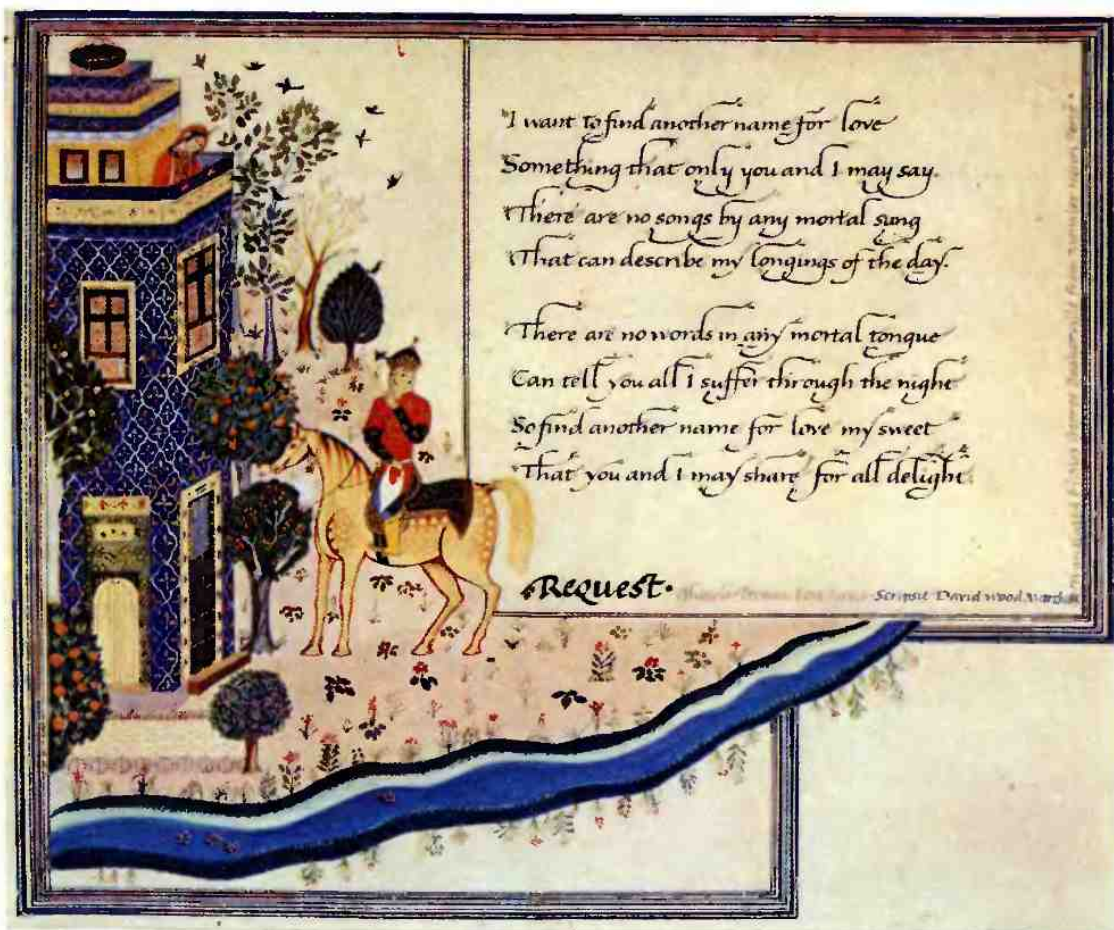 I want to find another name for love
Something that only you and I may say.
There are no songs by any mortal sung
That can describe my longings of the day.
There are no words in any mortal tongue
Can tell you all I suffer through the night
So find another name for love my sweet
That you and I may share for all delight.
•Request•
Scripsit David Wood